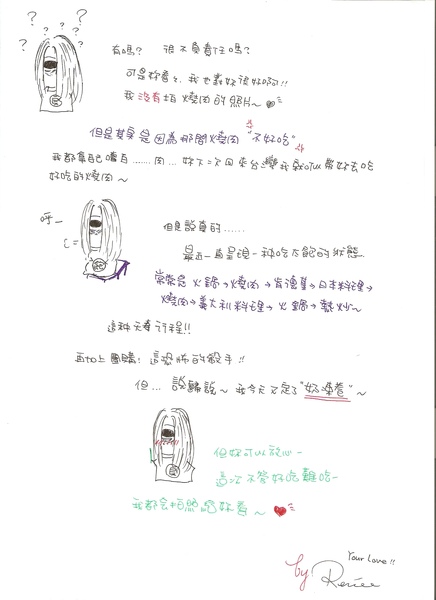 ? ? ? ? ? ?
有嗎? 很不負責任嗎?
可是妳看看, 我也對妳很好啊!!
我沒有拍燒肉的照片~
但是其實是因為那間燒肉 "不好吃"
我都拿自嗨自......肉... 妳下次回來台灣我就可以帶妳去吃
好吃的燒肉~
呼~
但是說真的......
最近一直呈現一種吃太飽的狀態
常常是火鍋→燒肉→肯德基→日本料理→
燒肉→義大利料理→火鍋→熱炒~
這種天奪行程!!
再加上團購: 這恐怖的殺手!!
但... 說歸說~ 我今天又定了 "奶凍卷" ~
但妳可以放心~
這次不管好吃難吃~
我都會拍照給妳看~
Your Love!!
by Renee